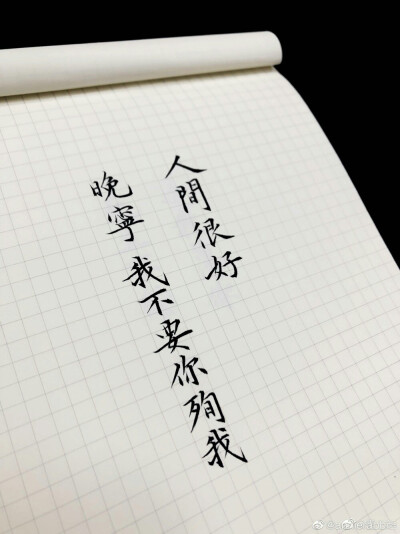 人間很好
晚寧 我不要你殉我